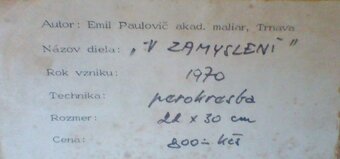 Autor: Emil Paulovič akad. maliar, Trnava
Názov diela: „V ZAMYSLENÍ"
Rok vzniku: 1970
Technika: perokresba
Rozmer: 22 x 30 cm
Cena: 800.- Kčs